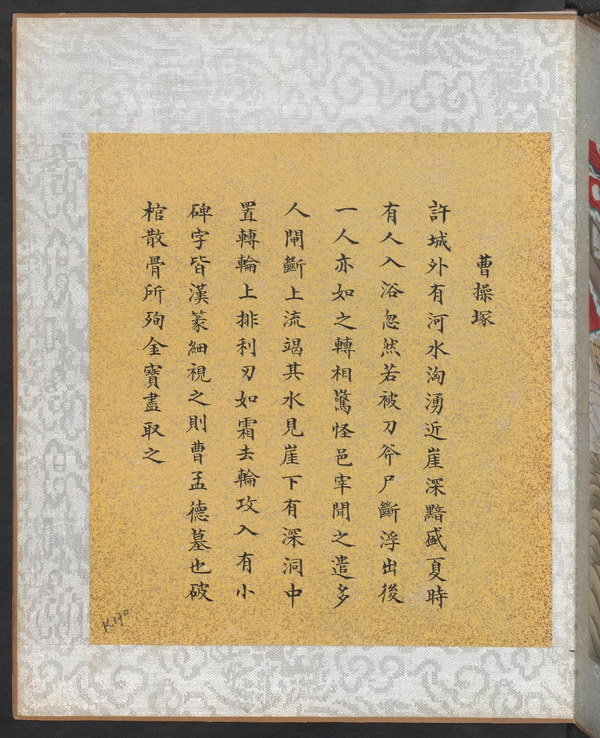 曹操塚
許城外有河水洶湧近崖深黯盛夏時
有人入浴忽然若被刀斧尸斷浮出後
一人亦如之轉相驚怪邑宰聞之遣多
人閘斷上流竭其水見崖下有深洞中
置轉輪上排利刃如霜去輪攻入有小
碑字皆漢篆細視之則曹孟德墓也破
棺散骨所殉金寶盡取之